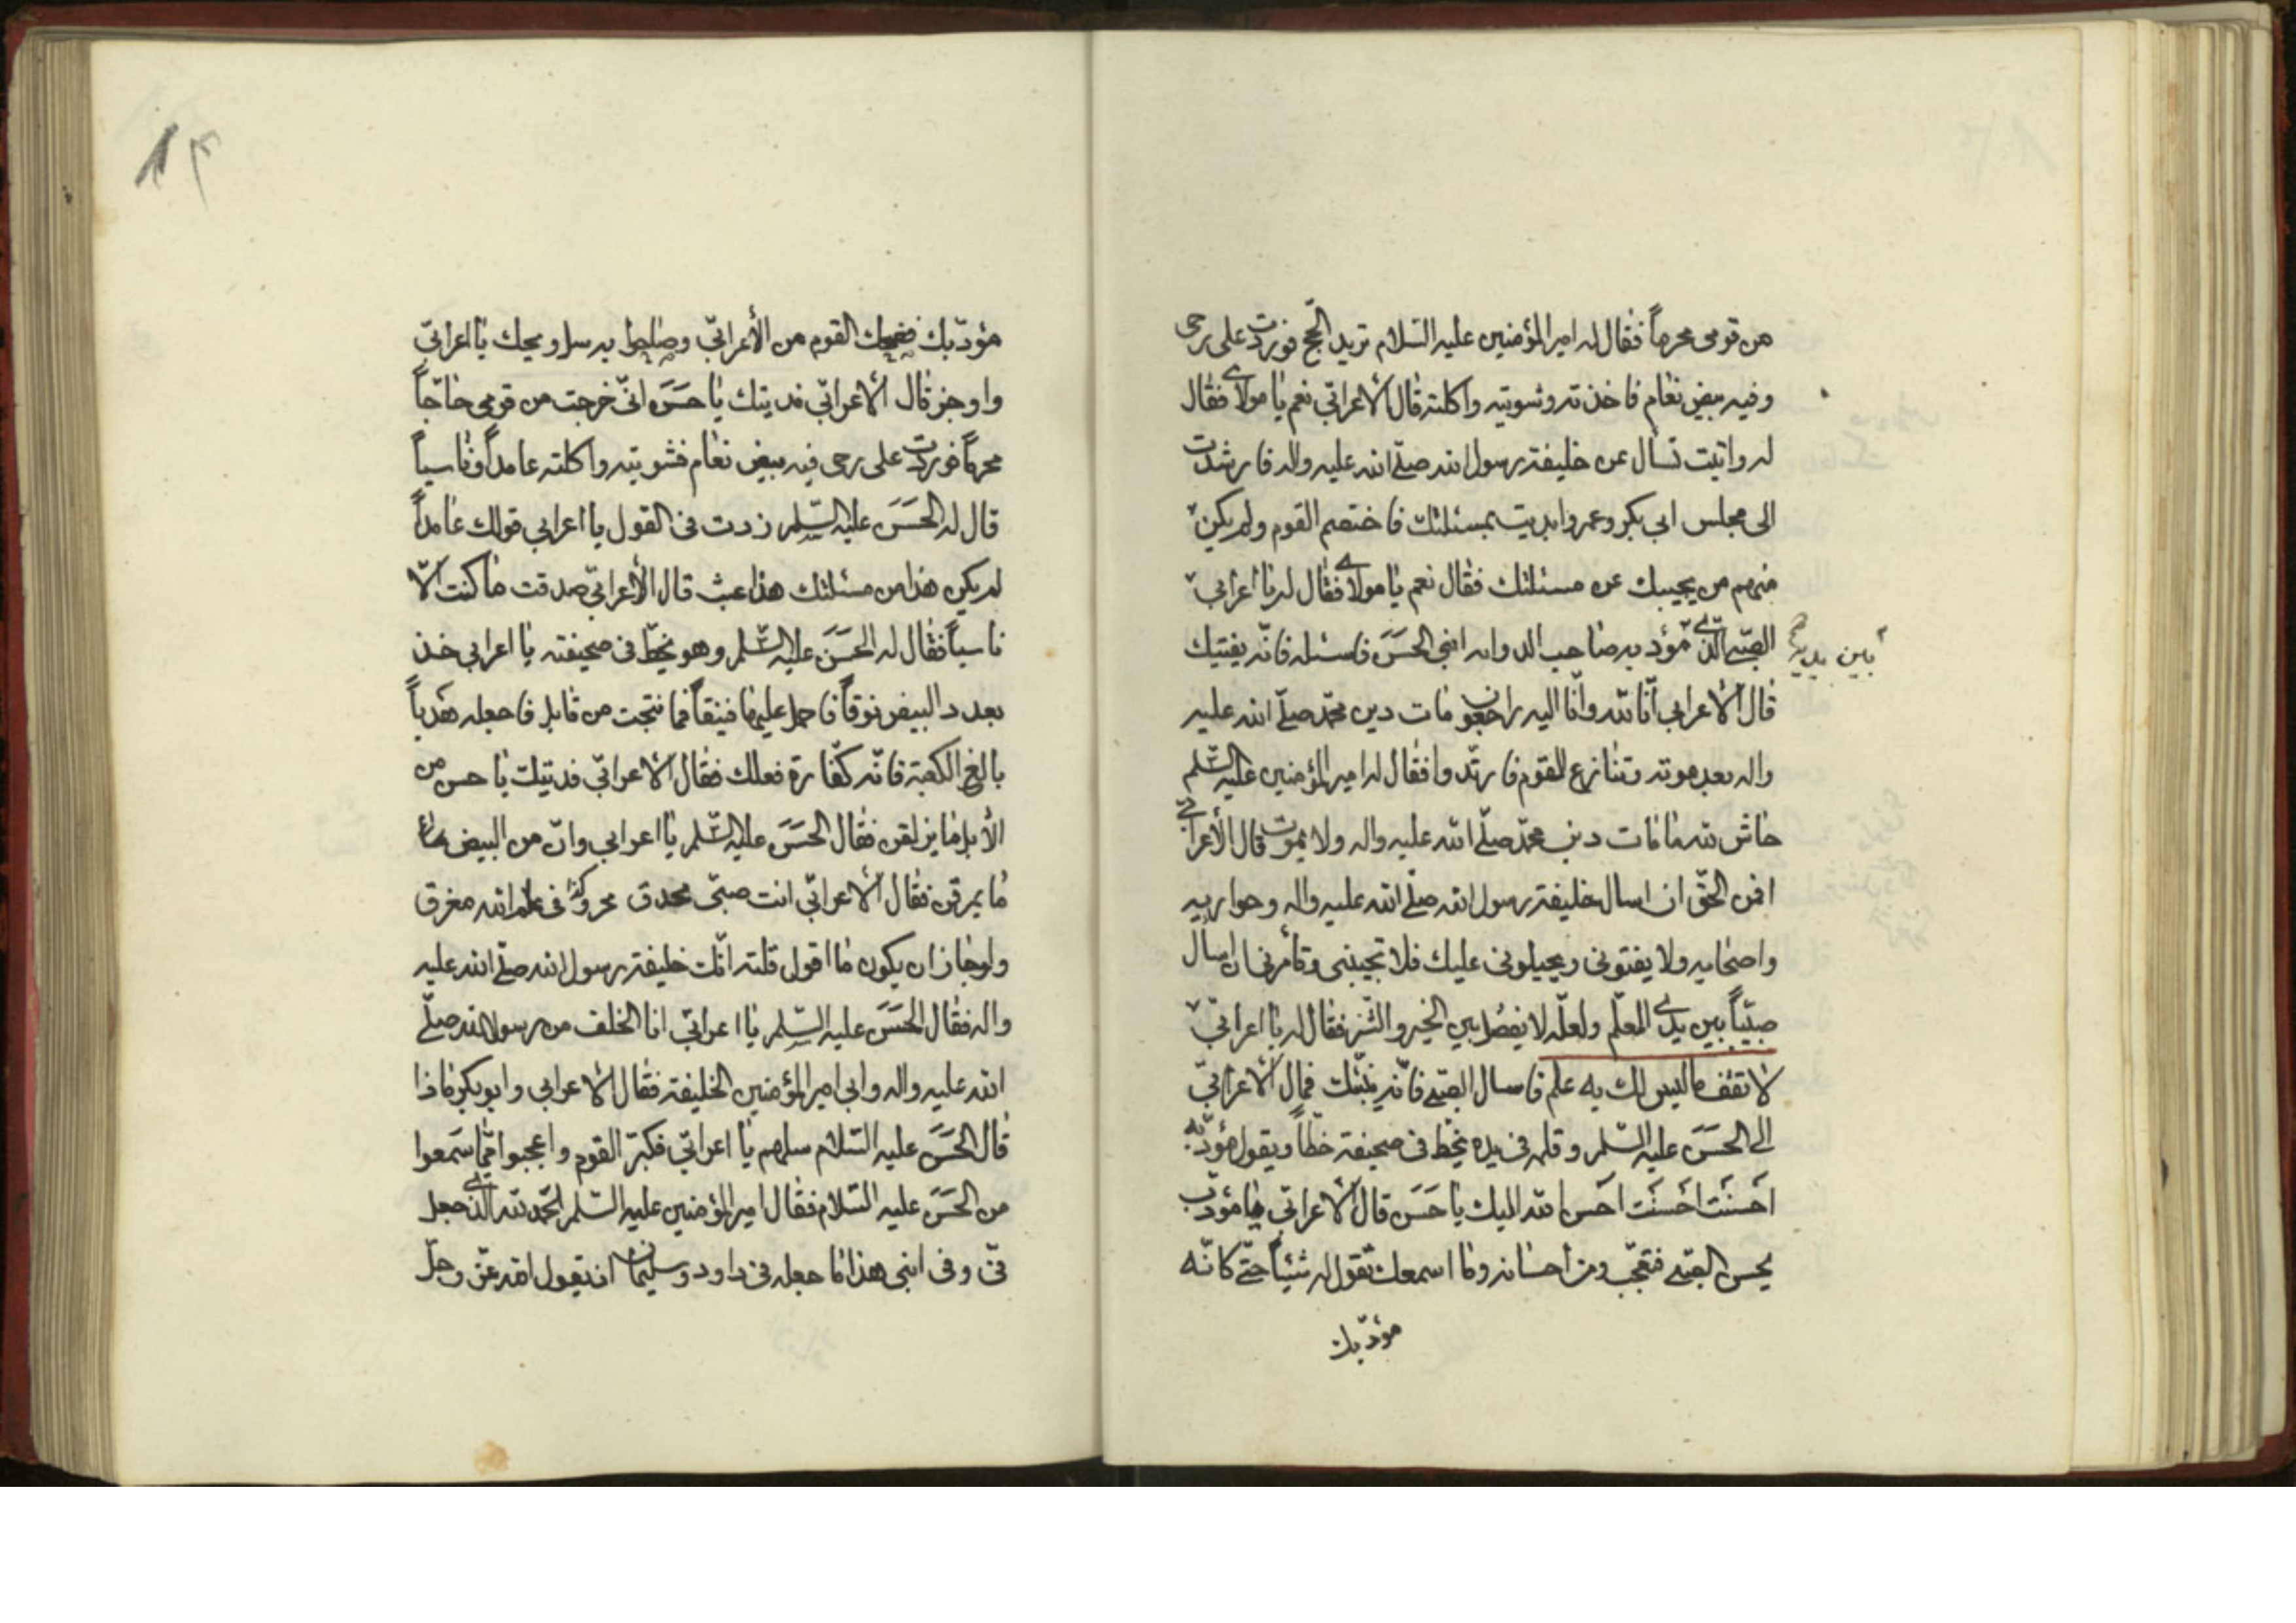 من قومى محرماً فقال له امير المؤمنين عليه السلام تريد الحج فوردت على دحى
وفيه بيض نعام فاخذته وشويته واكلته قال الأعرابي نعم يا مولاى فقال
له واتيت تسال عن خليفة رسول الله صلّى الله عليه واله فارشدت
الى مجلس ابى بكر وعمر وابديت بمسئلتك فاختصم القوم ولم يكن
منهم من يجيبك عن مسئلتك فقال نعم يا مولاى فقال له يا اعرابي
الصّبى الّذى بين يديه مؤدبه صاحب الدوابه ابنى الحَسَن فاسئله فانّه يفتيك
قال الأعرابي انّا لله وانّا اليه راجعون مات دين محمّد صلّى الله عليه
واله بعد موته وتنازع القوم فارتدّوا فقال له امير المؤمنين عليه السّلم
حاش لله ما مات دين محمّد صلّى الله عليه واله ولا يموت قال الأعرابى
افمن الحقّ ان اسال خليفة رسول الله صلّى الله عليه واله وحواريه
واصحابه ولا يفتونى ويحيلونى عليك فلا تجيبنى وتأمرنى ان اسال
صبيّاً بين يدى المعلّم ولعلّه لا يفصل بين الخير والشّر فقال له يا اعرابيّ
لا تقف ما ليس لك به علم فاسال الصبى فانّه ينبّئك فمال الأعرابيّ
الى الحَسَن عليه السّلم وقلمه فى يده يخط فى صحيفة خطاً ويقول مؤدّبه
اَحسَنتَ اَحسَنتَ احسن الله اليك يا حَسَن قال الأعرابي يا مؤدّب
يحسن الصبى فتعجّب من احسانه وما اسمعك تقول له شيئاً حتّى كانّه
مؤدّبك
مؤدّبك فضحك القوم من الأعرابيّ وصاحوا به سل ويحك يا اعرابيّ
واوجز قال الأعرابيّ فديتك يا حَسَن انّى خرجت من قومى حاجّاً
محرماً فوردت على دحى فيه بيض نعام فشويته واكلته عامداً وناسياً
قال له الحَسَن عليه السّلم زدت فى القول يا اعرابي قولك عامداً
لم يكن هذا من مسئلتك هذا عبث قال الأعرابيّ صدقت ما كنت الّا
ناسياً فقال له الحَسَن عليه السّلم وهو يخطّ فى صحيفته يا اعرابي خذ
بعدد البيض نوقاً فاحمل عليها فنيقاً فما نتجت من قابل فاجعله هَدياً
بالغ الكعبة فانّه كفّارة فعلك فقال الأعرابيّ فديتك يا حسن من
الأبل ما يزلقن فقال الحَسَن عليه السّلم يا اعرابي وانّ من البيض
ما يمرقن فقال الأعرابيّ انت صبىّ محدق فى علم الله مغرق
ولو جاز ان يكون ما اقول قلته انّك خليفة رسول الله صلّى الله عليه
واله فقال الحَسَن عليه السّلم يا اعرابيّ انا الخلف من رسول الله صلّى
الله عليه واله وابى امير المؤمنين الخليفة فقال الأعرابي وابوبكر ماذا
قال الحَسَن عليه السّلام سلهم يا اعرابيّ فكبّر القوم واعجبوا ممّا سَمعوا
من الحَسَن عليه السّلام فقال امير المؤمنين عليه السّلم الحمد لله الّذى جعل
فىّ وفى ابنى هذا ما جعله فى داود وسليمان اذ يقول الله عزّ وجلّ